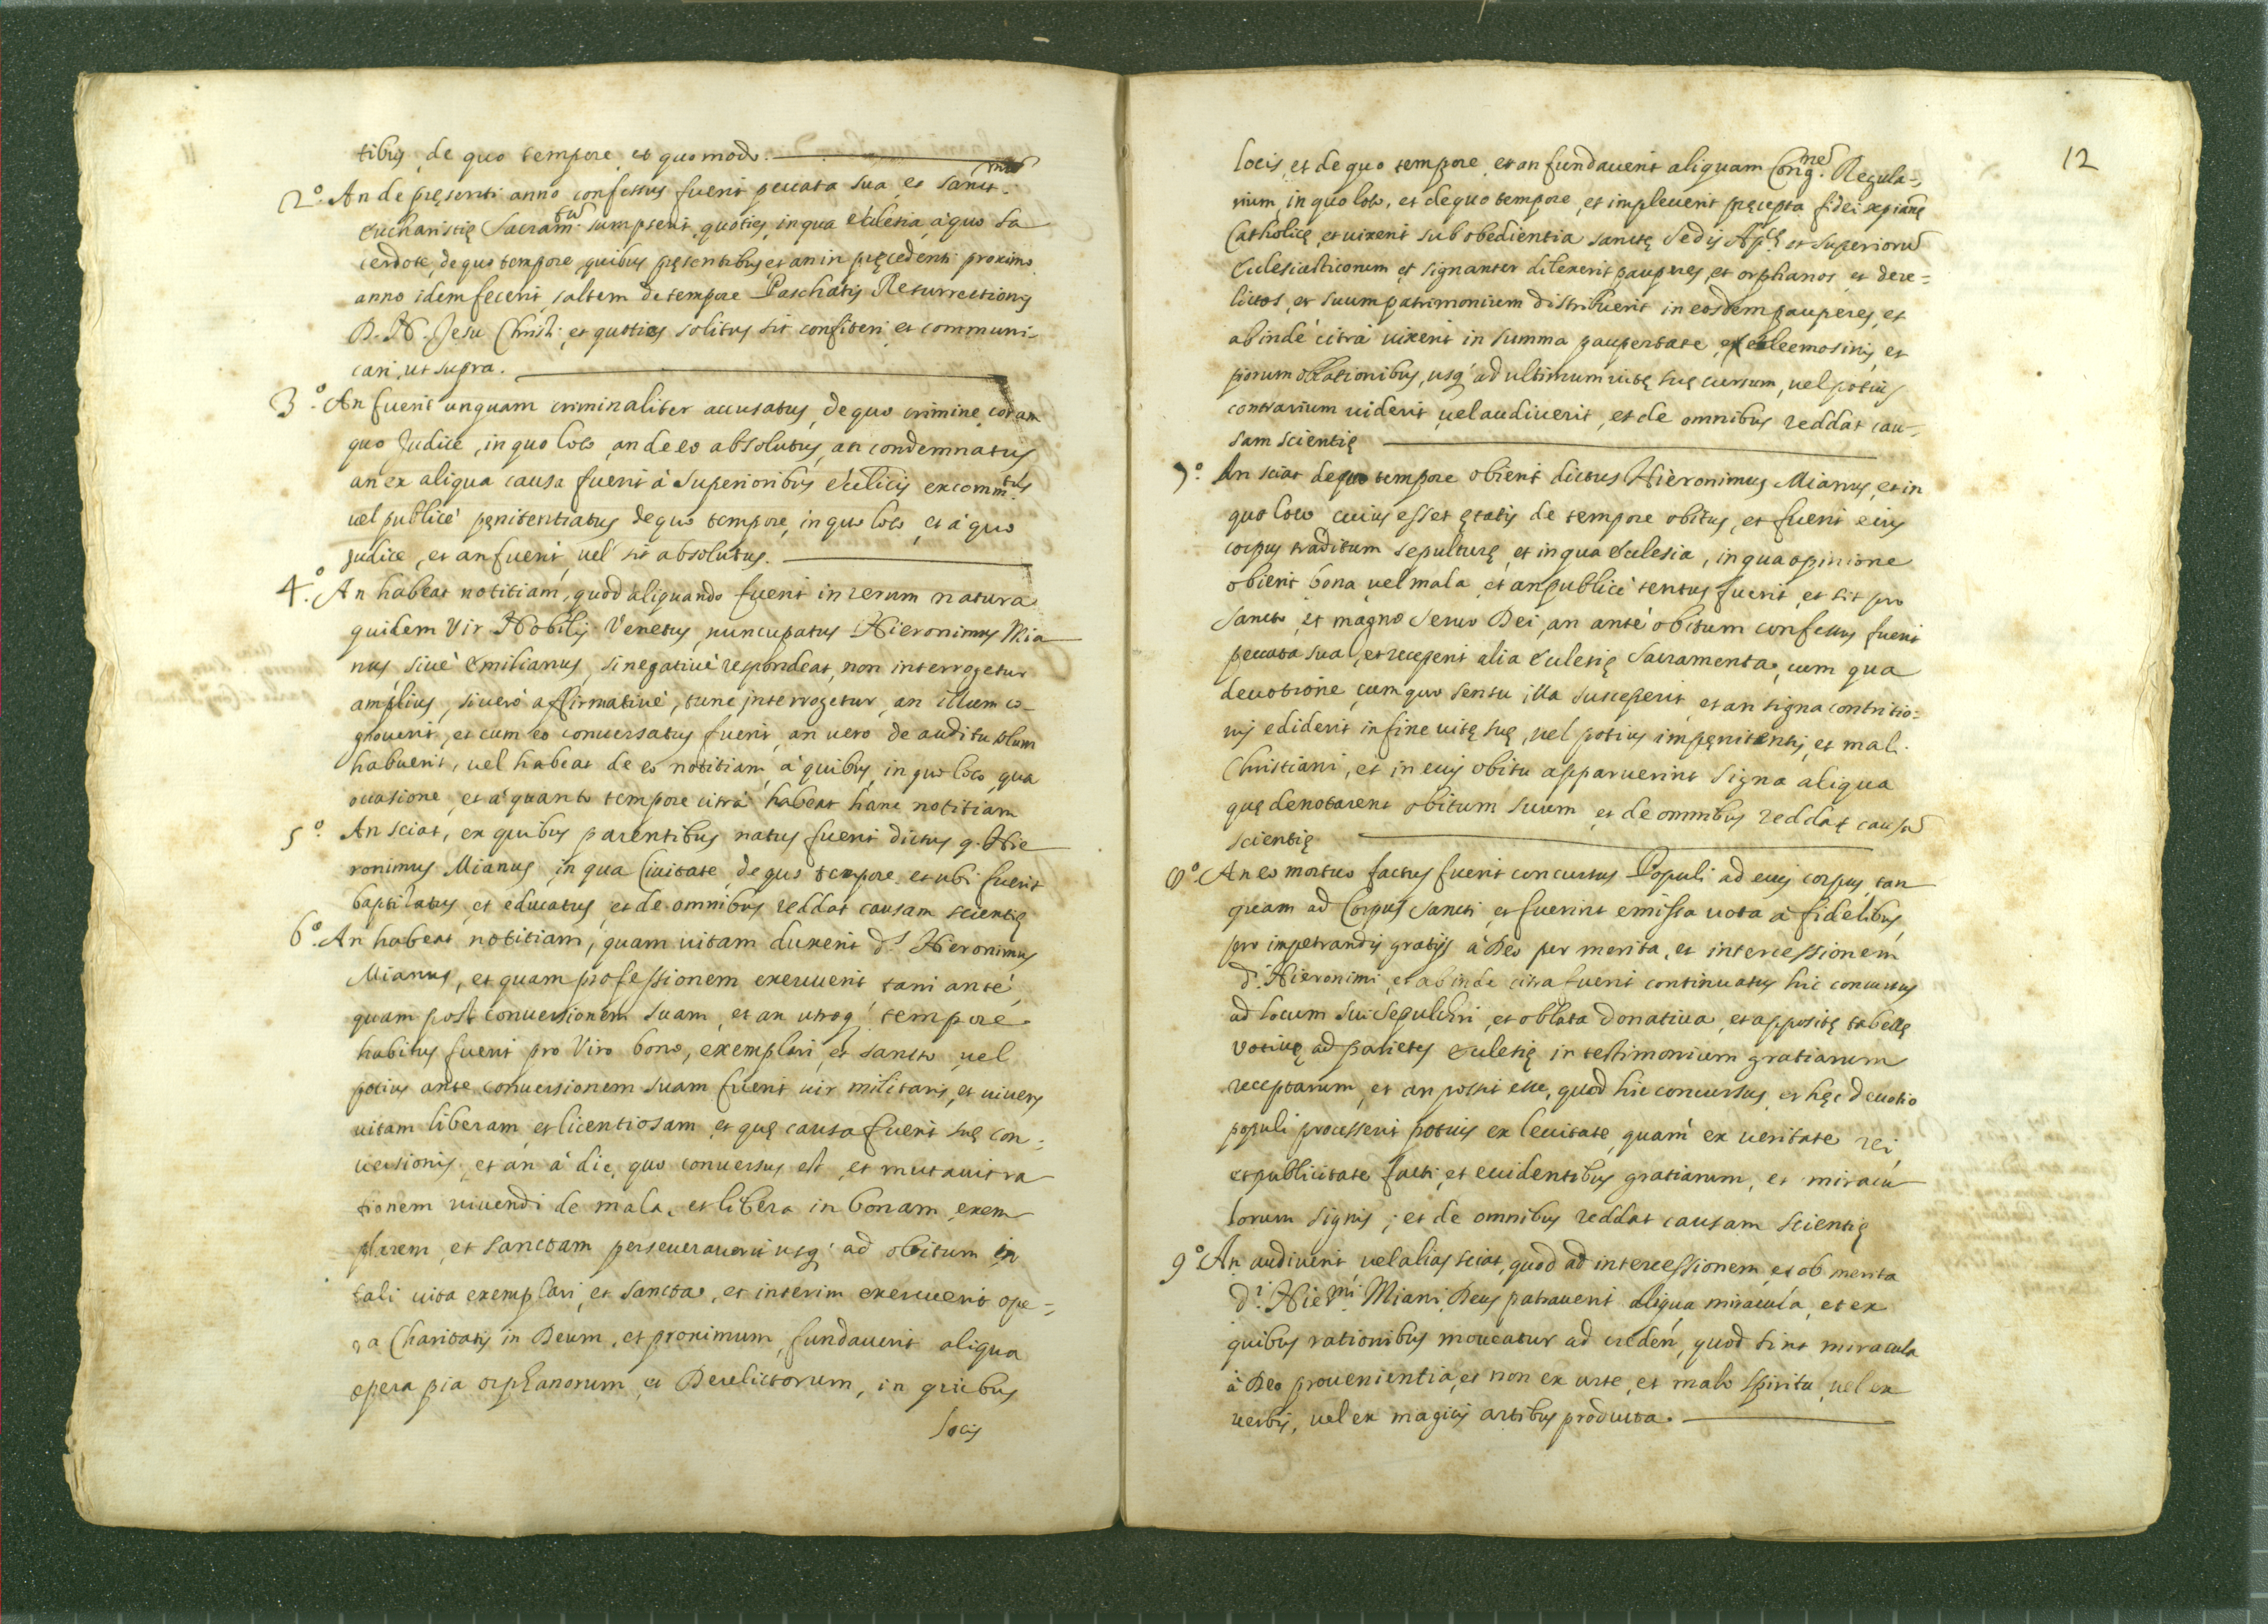 tibus, de quo tempore et quomodo.
2.º An de pręsenti anno confessus fuerit peccata sua, et Sanct.mũ
Eucharistię Sacram.tũ sumpserit, quoties, in qua ecclesia, à quo Sa
cerdote, de quo tempore, quibus pręsentibus, et an in pręcedenti proximo
anno idem fecerit, saltem de tempore Paschatis Resurrectionis
D. N. Jesu Christi, et quoties solitus sit confiteri, et communi=
cari, ut supra.
3.º An fuerit unquam criminaliter accusatus, de quo crimine, coram
quo Judice, in quo loco, an de eo absolutus, an condemnatus
an ex aliqua causa fuerit à Superioribus ecclicis excomm.tus
vel publicè pęnitentiatus de quo tempore, in quo loco, et à quo
judice, et an fuerit, vel sit absolutus.
4.º An habeat notitiam, quod aliquando fuerit in rerum natura
quidem Vir Nobilis Venetus, nuncupatus Hieronimus Mia
nus, sivè Emilianus, si negativè respondeat, non interrogetur
amplius, si verò affirmativè, tunc interrogetur, an illum co-
gnoverit, et cum eo conversatus fuerit, an vero de auditu solum
habuerit, vel habeat de eo notitiam, à quibus, in quo loco, qua
occasione, et à quanto tempore citrà habeat hanc notitiam
5º. An sciat, ex quibus parentibus natus fuerit dictus q. Hie
ronimus Mianus, in qua Civitate, de quo tempore, et ubi fuerit
baptisatus, et educatus, et de omnibus reddat causam scientię
6º. An habeat notitiam, quam vitam duxerit d.s Hieronimus
Mianus, et quam professionem exercuerit, tam antè,
quam post conversionem suam, et an utroq; tempore
habitus fuerit pro Viro bono, exemplari, et sancto, vel
potius ante conversionem suam fuerit vir militaris, et vivens
vitam liberam, et licentiosam, et quę causa fuerit suę con=
versionis, et an à die, quo conversus est, et mutavit ra
tionem vivendi de mala, et libera in bonam, exem
plarem, et sanctam perseveraverit usq; ad obitum in
tali vita exemplari, et sancta, et interim exercuerit ope=
ra Charitatis in Deum, et proximum, fundaverit aliqua
opera pia orphanorum, et Derelictorum, in quibus
locis
12
locis, et de quo tempore, et an fundaverit aliquam Cong.nẽ Regula=
rium, in quo loco, et de quo tempore, et impleverit pręcepta fidei xpianę
Catholicę, et vixerit sub obedientia sanctę Sedis Ap.cę et Superiorũ
Ecclesiasticorum, et signanter dilexerit pauperes, et orphanos, et dere=
lictos, et suum patrimonium distribuerit in eosdem pauperes, et
ab indè citrà vixerit in summa paupertate, ex eleemosinis, et
piorum oblationibus, usq; ad ultimum vitę suę cursum, vel potius
contrarium viderit, vel audiverit, et de omnibus reddat cau-
sam scientię
7º. An sciat de quo tempore obierit dictus Hieronimus Mianus, et in
quo loco, cuius esset ętatis de tempore obitus, et fuerit eius
corpus traditum sepulturę, et in qua Ecclesia, in qua opinione
obierit bona, vel mala, et an publicè tentus fuerit, et sit pro
sancto, et magno servo Dei, an antè obitum confessus fuerit
peccata sua, et receperit alia Ecclesię Sacramenta, cum qua
devotione, cum quo sensu illa susceperit, et an signa contritio=
nis ediderit in fine vitę suę, vel potius impęnitentis, et mali
Christiani, et in eius obitu apparuerint signa aliqua
quę denotarent obitum suum, et de omnibus reddat causã
scientię
8º. An eo mortuo factus fuerit concursus Populi ad eius corpus, tan
quam ad Corpus Sancti, et fuerint emissa vota à fidelibus
pro impetrandis gratijs à Deo per merita, et intercessionem
d.i Hieronimi, et ab inde citra fuerit continuatus hic concursus
ad locum sui Sepulchri, et oblata donativa, et appositę tabellę
votivę ad parietes ecclesię in testimonium gratiarum
receptarum, et an possit esse, quod hic concursus, et hęc devotio
populi processerit potius ex levitate, quam ex veritate rei,
et publicitate facti, et evidentibus gratiarum, et miracu
lorum signis; et de omnibus reddat causam scientię
9º. An audiverit vel alias sciat, quod ad intercessionem, et ob merita
d.i Hier.mi Miani Deus patraverit aliqua miracula, et ex
quibus rationibus moveatur ad creden̄, quod sint miracula
à Deo provenientia, et non ex arte, et malo spiritu, vel ex
verbis, vel ex magicis artibus producta.